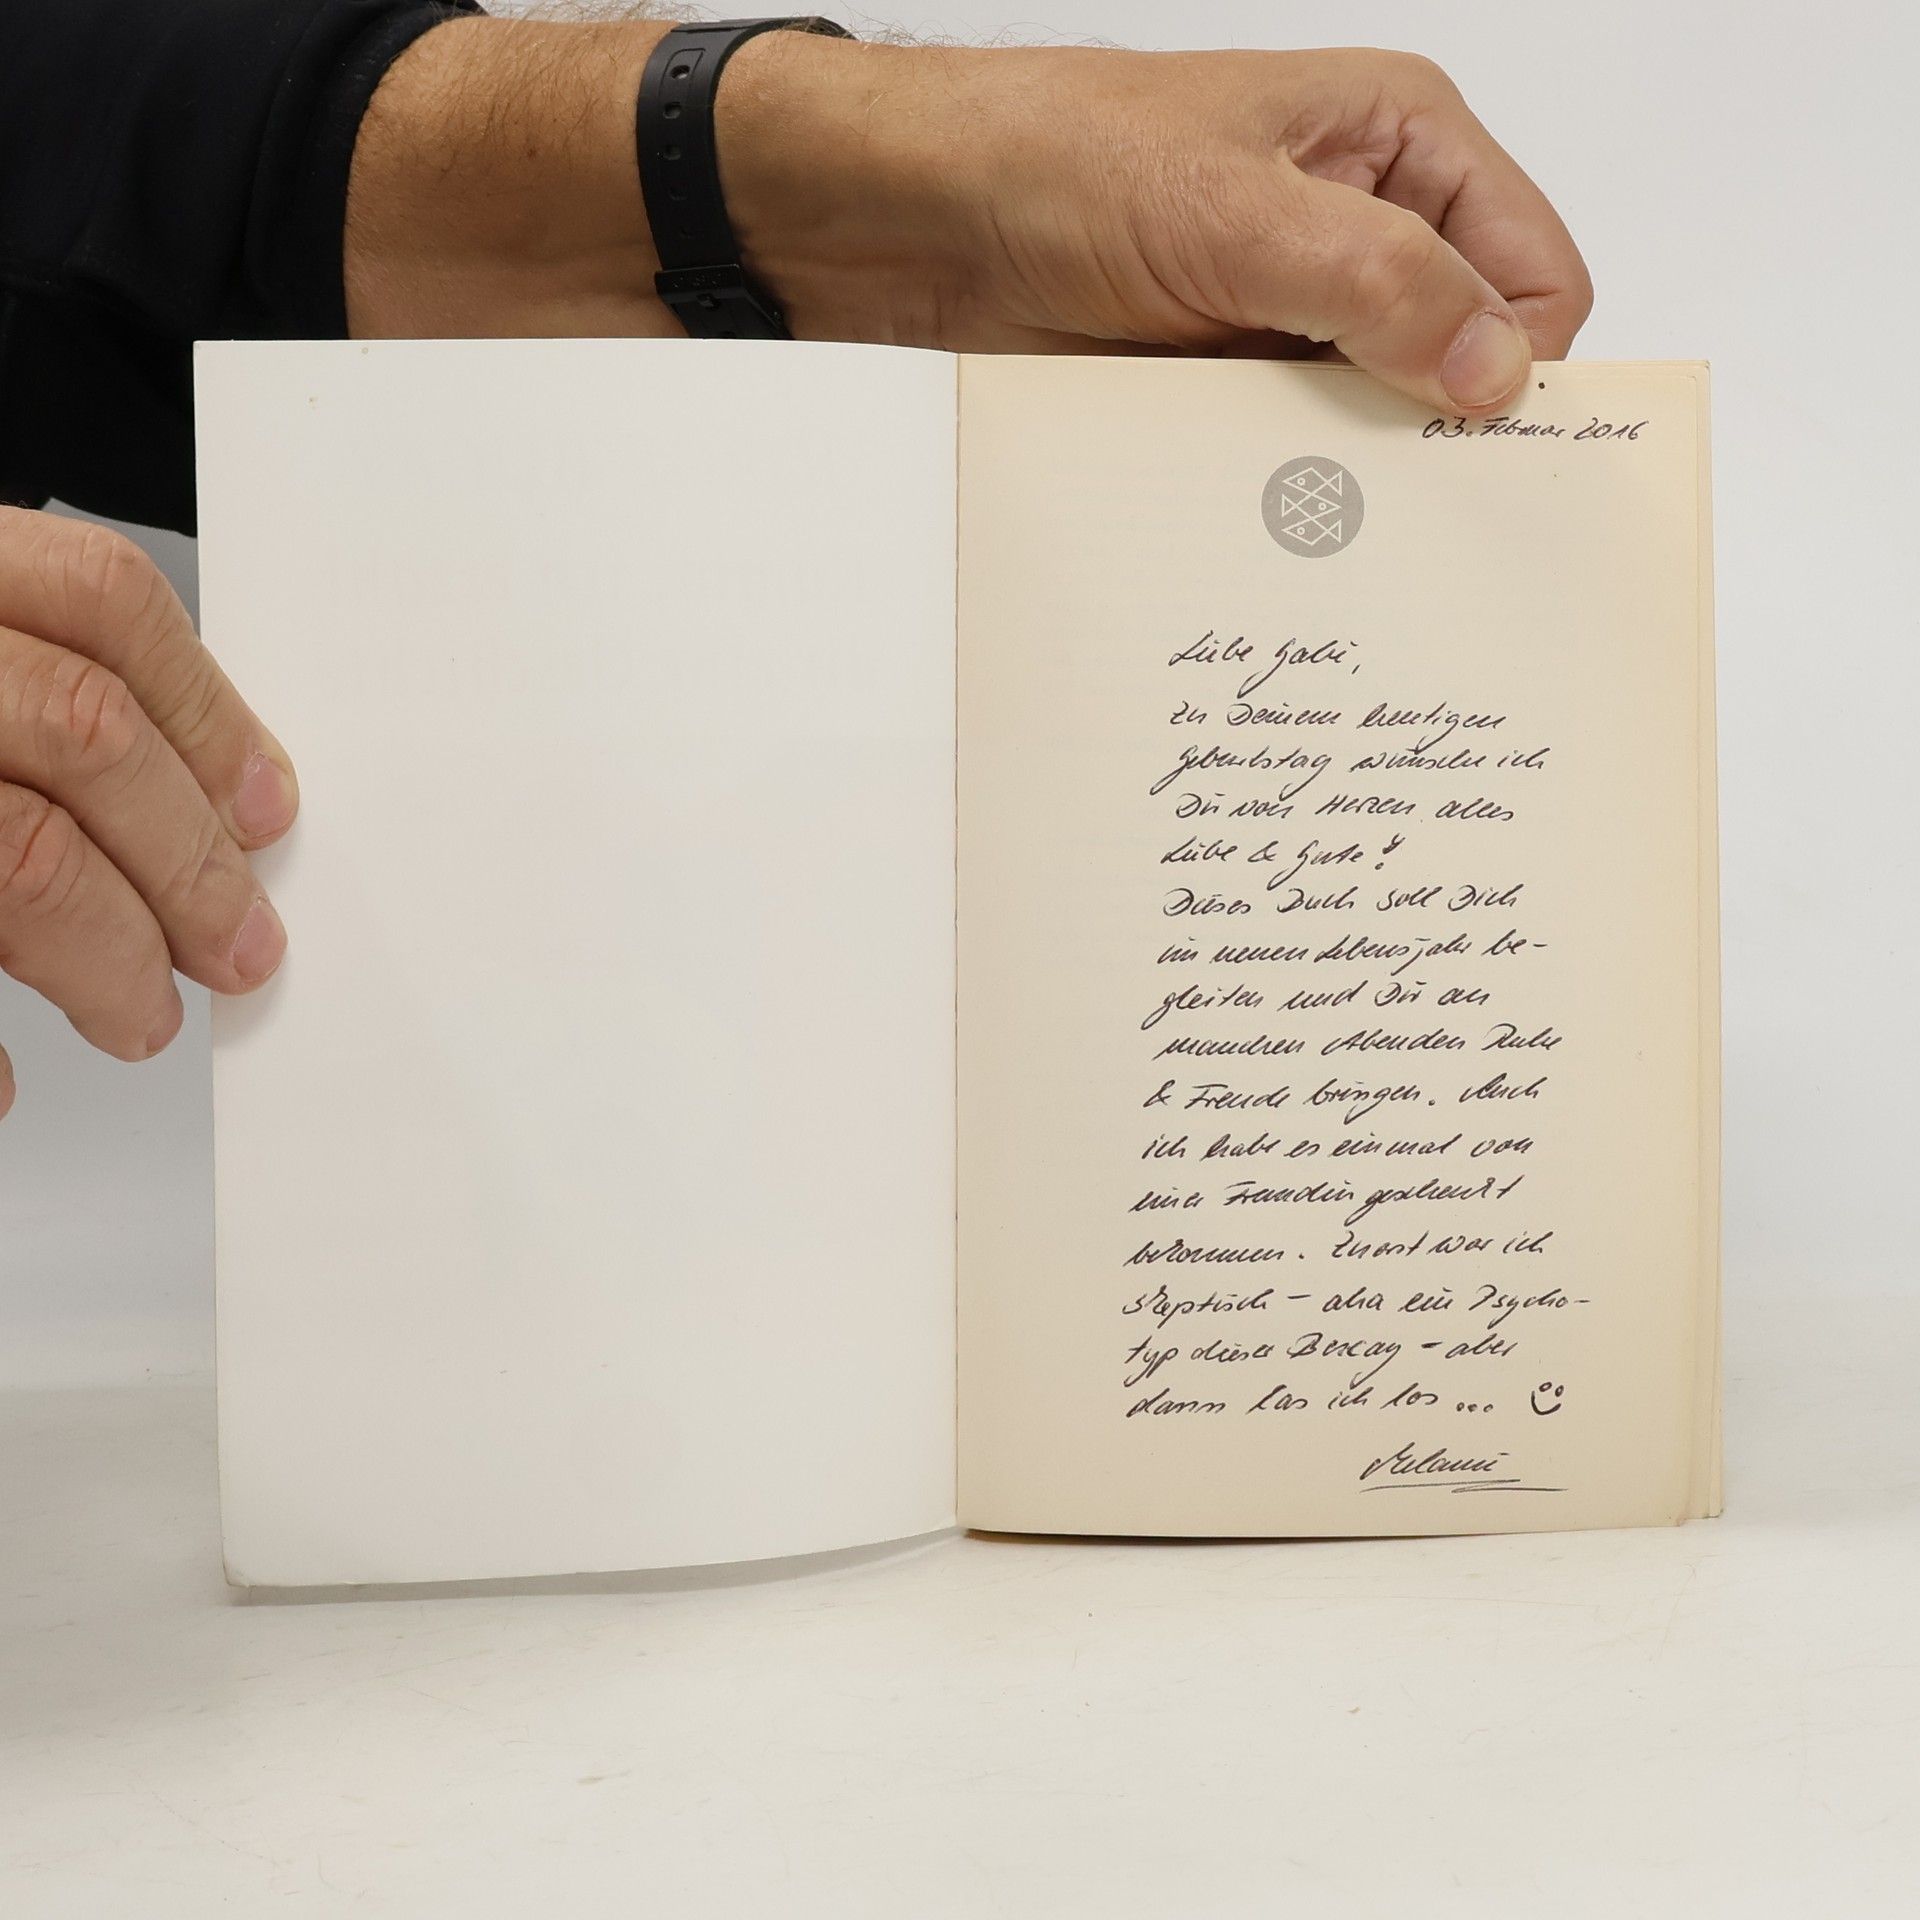 03. Februar 2016
Liebe Gabi,
zu Deinem heutigen
Geburtstag wünsche ich
Dir von Herzen alles
Liebe & Gute!
Dieses Buch soll Dich
im neuen Lebensjahr be-
gleiten und Dir an
manchen Abenden Ruhe
& Freude bringen. Auch
ich habe es einmal von
einer Freundin geschenkt
bekommen. Zuerst war ich
skeptisch – aha ein Psycho-
typ dieser Bucay – aber
dann las ich los ...
Melanie